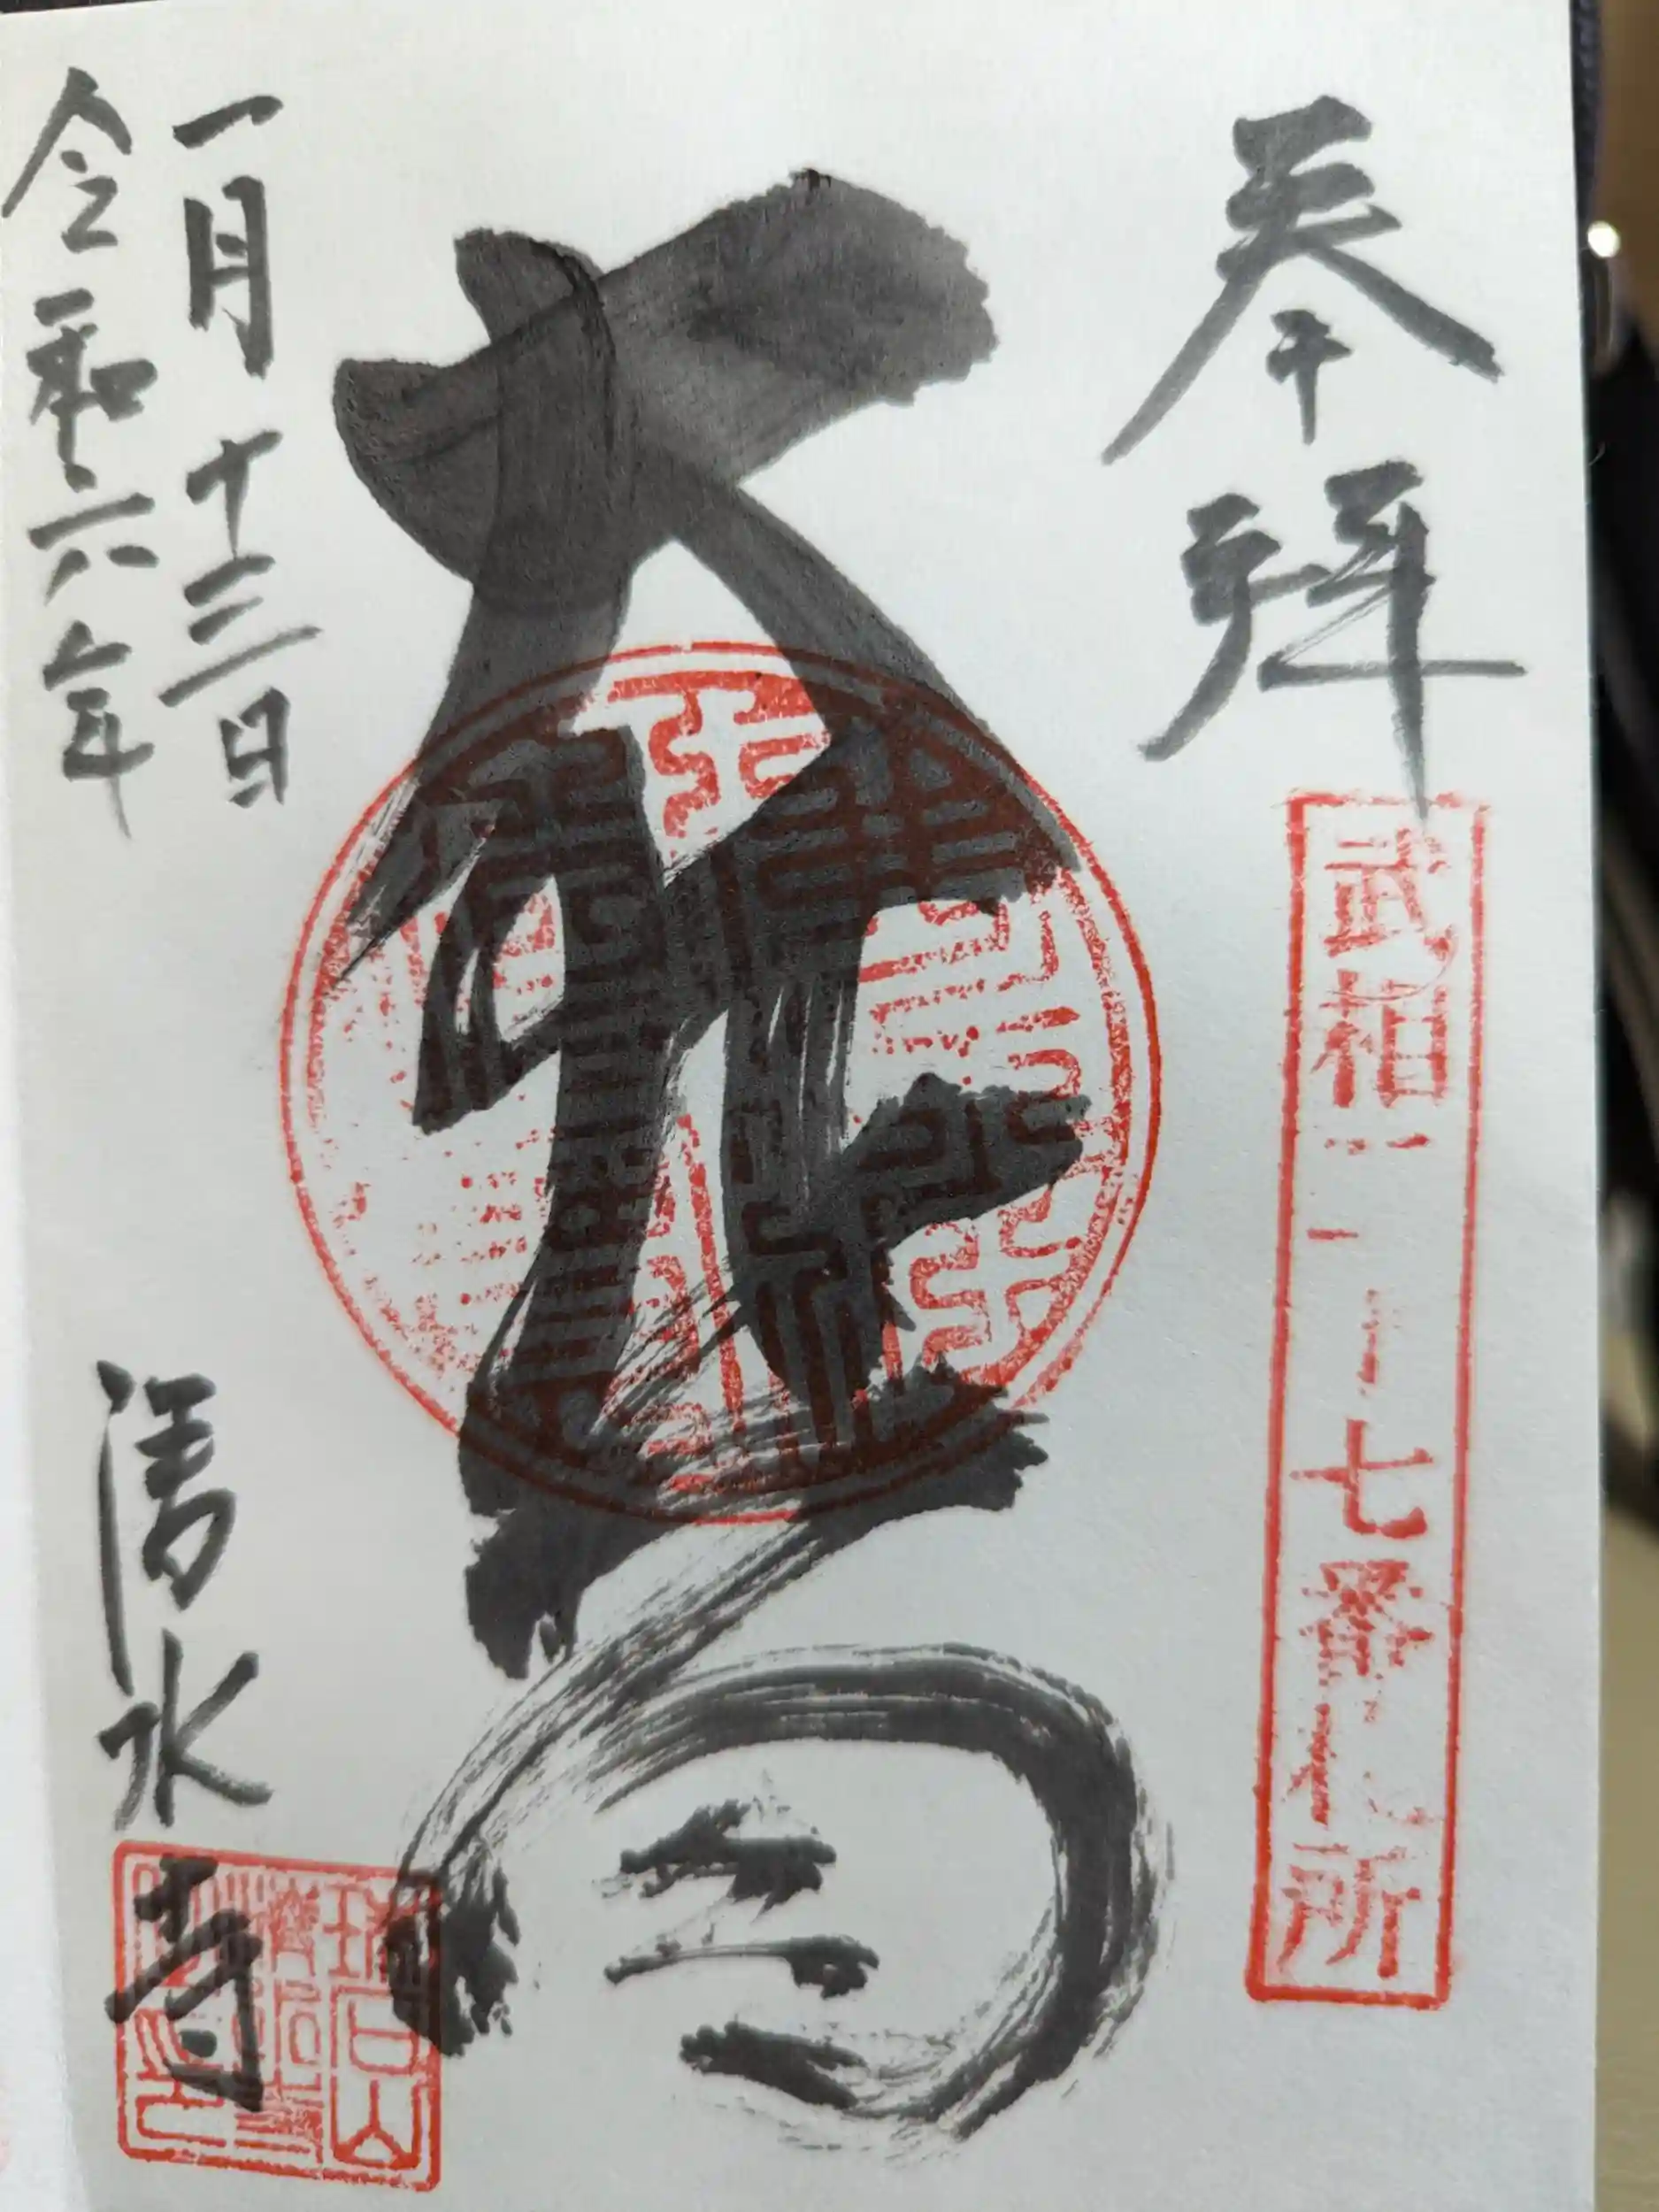 奉拝
武相二十七番札所
大悲閣
令和六年
一月十三日
清水寺